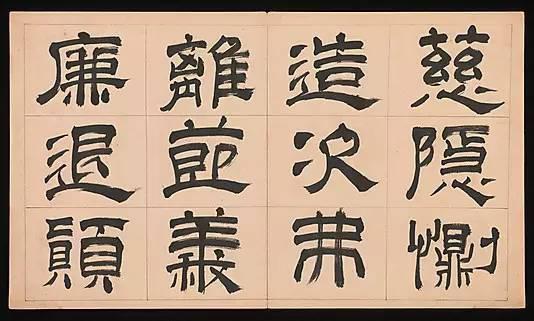 慈隱惻
造次弗
離節義
廉退顛